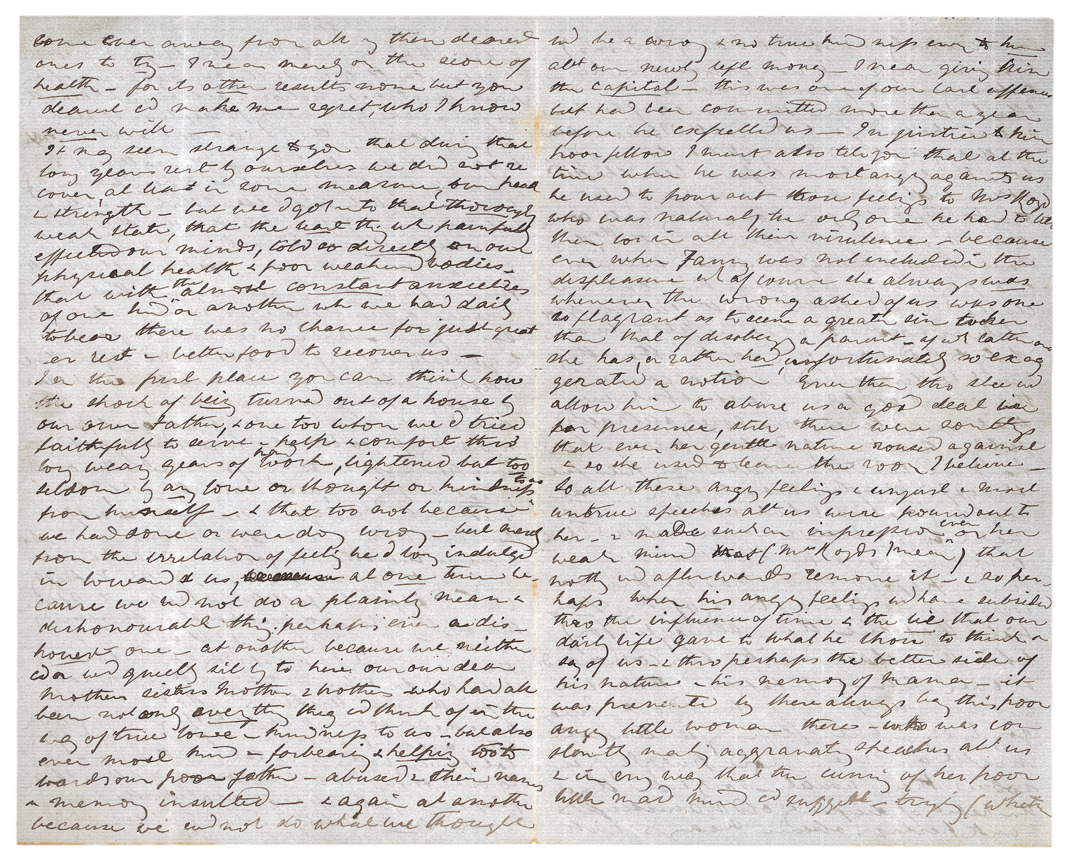 come over away from all of them dearest
ones to try — I mean merely on the score of
health — for its other results none but you
dearest cd make me regret, who I know
never will —
It may seem strange to you that during that
long years rest by ourselves we did not re
cover, at least in some measure, our health
& strength — but we'd got into that thoroughly
weak state, that the least thing wh painfully
effected our minds, told so directly on our
physical health & poor weakened bodies —
that with the almost constant anxieties
of one kind or another wh we had daily
to bear there was no chance for just great
er rest & better food to recover us —
In the first place you can think how
the shock of being turned out of a house by
our own Father, & one too whom we'd tried
faithfully to serve — help & comfort thro
long weary years of hard work, lightened but too
seldom by any love or thought or kindness to us
from himself — & that too not because
we had done or were doing wrong — but merely
from the irritation of feeling he'd long indulged
in towards us, at one time be
cause we wd not do a plainly mean &
dishonourable thing, perhaps even a dis-
honest one — at another because we neither
cd or wd quietly sit by to hear our own dear
Mothers sisters Mother & brothers who had all
been not only everything they cd think of in the
way of true love & kindness to us — but also
even most kind — forbearing & helping to
wards our poor father — abused & their names
& memory insulted — & again at another
because we wd not do what we thought
wd be a wrong & no true kindness even to him
abt our newly left money — I mean giving him
the capital — this was one of our last offences
but had been committed more than a year
before he expelled us — In justice to him
poor fellow I must also tell you that at the
time when he was most angry against us
he used to pour out those feelings to Mrs Royds
who was naturally the only one he had to let
them loose in all their virulence — because
even when Fanny was not included in the
displeasure wh of course she always was
whenever the wrong asked of us was one
so flagrant as to seem a greater sin to her
than that of disobeying a parent — of wh latter one
she has, or rather had, unfortunately so exag
gerated a notion, Even then tho she wd
allow him to abuse us a good deal in
her presence, still there were some things
that even her gentle nature roused against
& so she used to leave the room I believe —
So all these angry feelings & unjust & most
untrue speeches abt us were poured out to
her — & made such an impression even on her
weak mind (Mrs Royds I mean) that
nothing wd afterwards remove it — & so per-
haps when his angry feelings wd have subsided
thro the influence of time & the lie that our
daily life gave to what he chose to think or
say of us — & thro perhaps the better side of
his nature — his memory of mama — it
was prevented by there always being this poor
angry little woman there — who was con
stantly making aggravating speeches abt us
& in every way that the cunning of her poor
little mad mind cd suggest — trying (whether